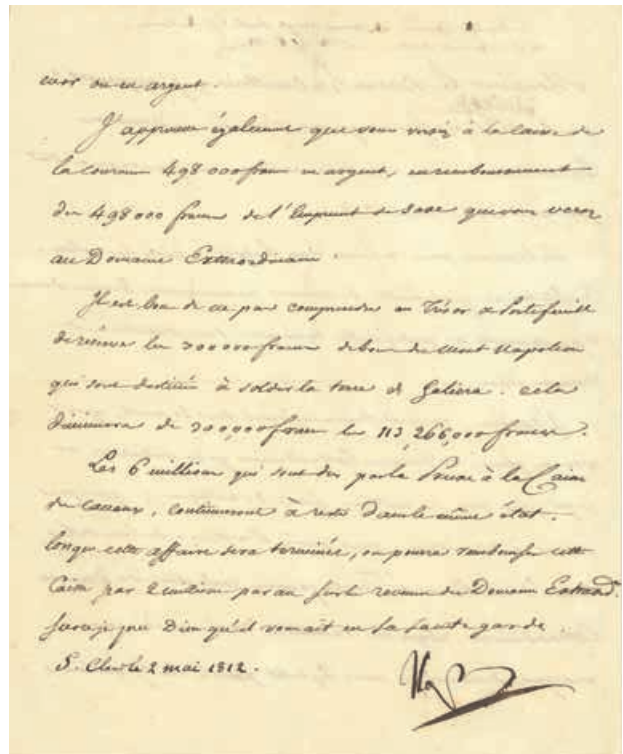 en or ou en argent.
J'approuve également que vous versiez à la Caisse de
la Couronne 498 000 francs en argent, en remboursement
des 498 000 francs de l'Emprunt de Saxe que vous verez
au Domaine Extraordinaire.
Il est bon de ne pas comprendre au Trésor de Portefeuille
de réserve les 700 000 francs de bons du Mont Napoléon
qui sont destinés à solder la terre de Galiera. cela
diminuera de 700,000 francs les 113,266,000 francs.
Les 6 millions qui sont dus par la Prusse à la Caisse
des canaux, continueront à rester dans le même état.
lorsque cette affaire sera terminée, on pourra rembourser cette
Caisse par 2 millions par an sur le revenu du Domaine Extraord.
Sur ce je prie Dieu qu'il vous ait en sa sainte garde.
S. Cloud le 2 mai 1812.
Nap